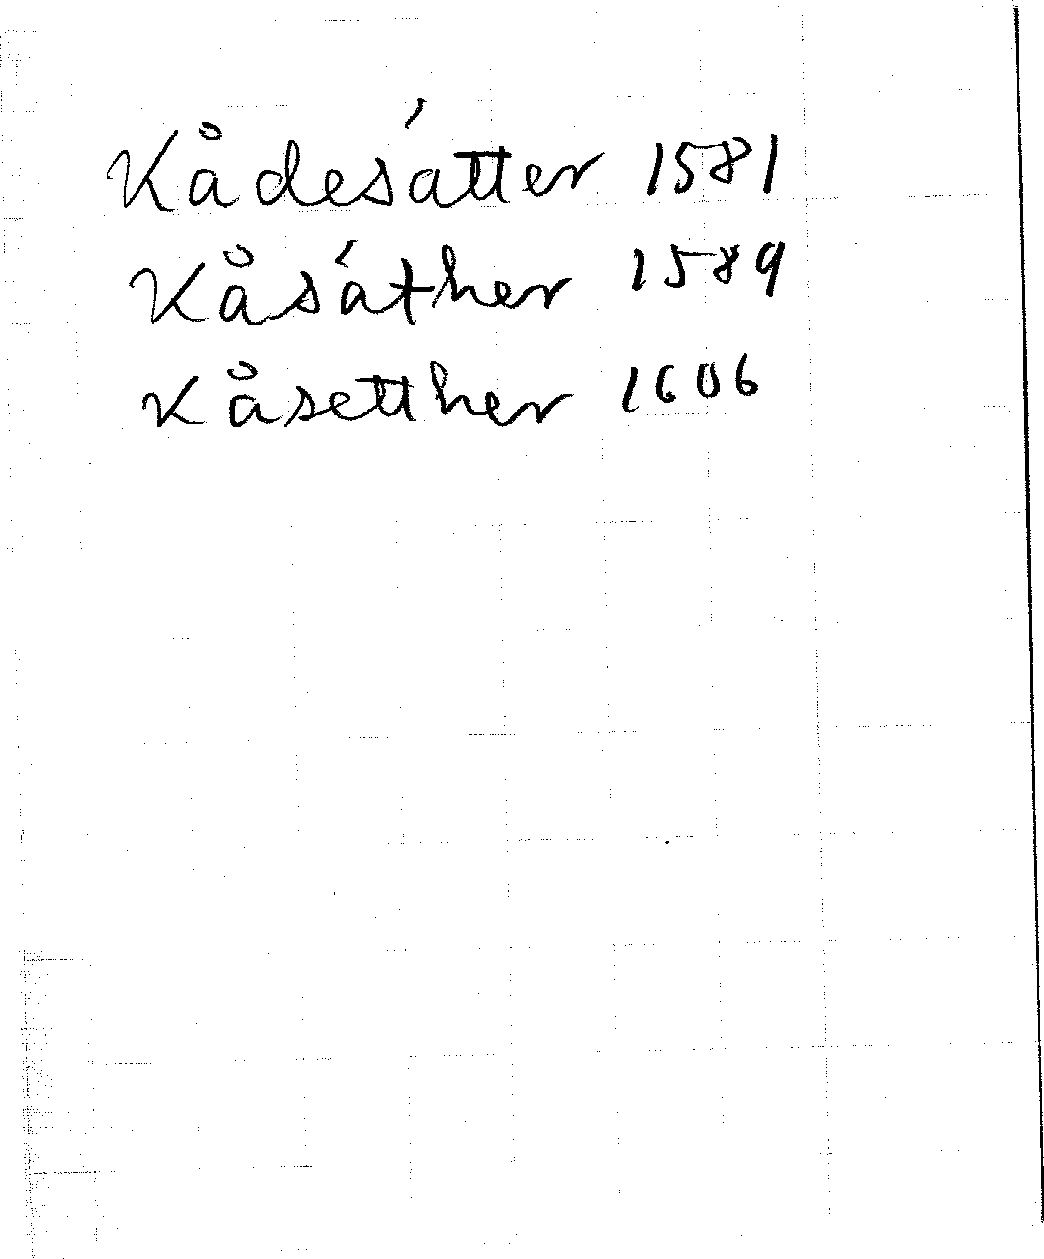 Kådesátter 1581
Kåsáther 1589
Kåsetther 1606